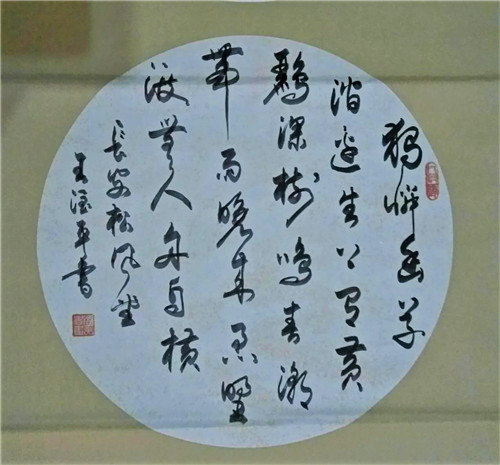 獨憐幽草
澗邊生上有黃
鸝深樹鳴春潮
帶雨晚來急野
渡無人舟自橫
長安松風堂
王平書